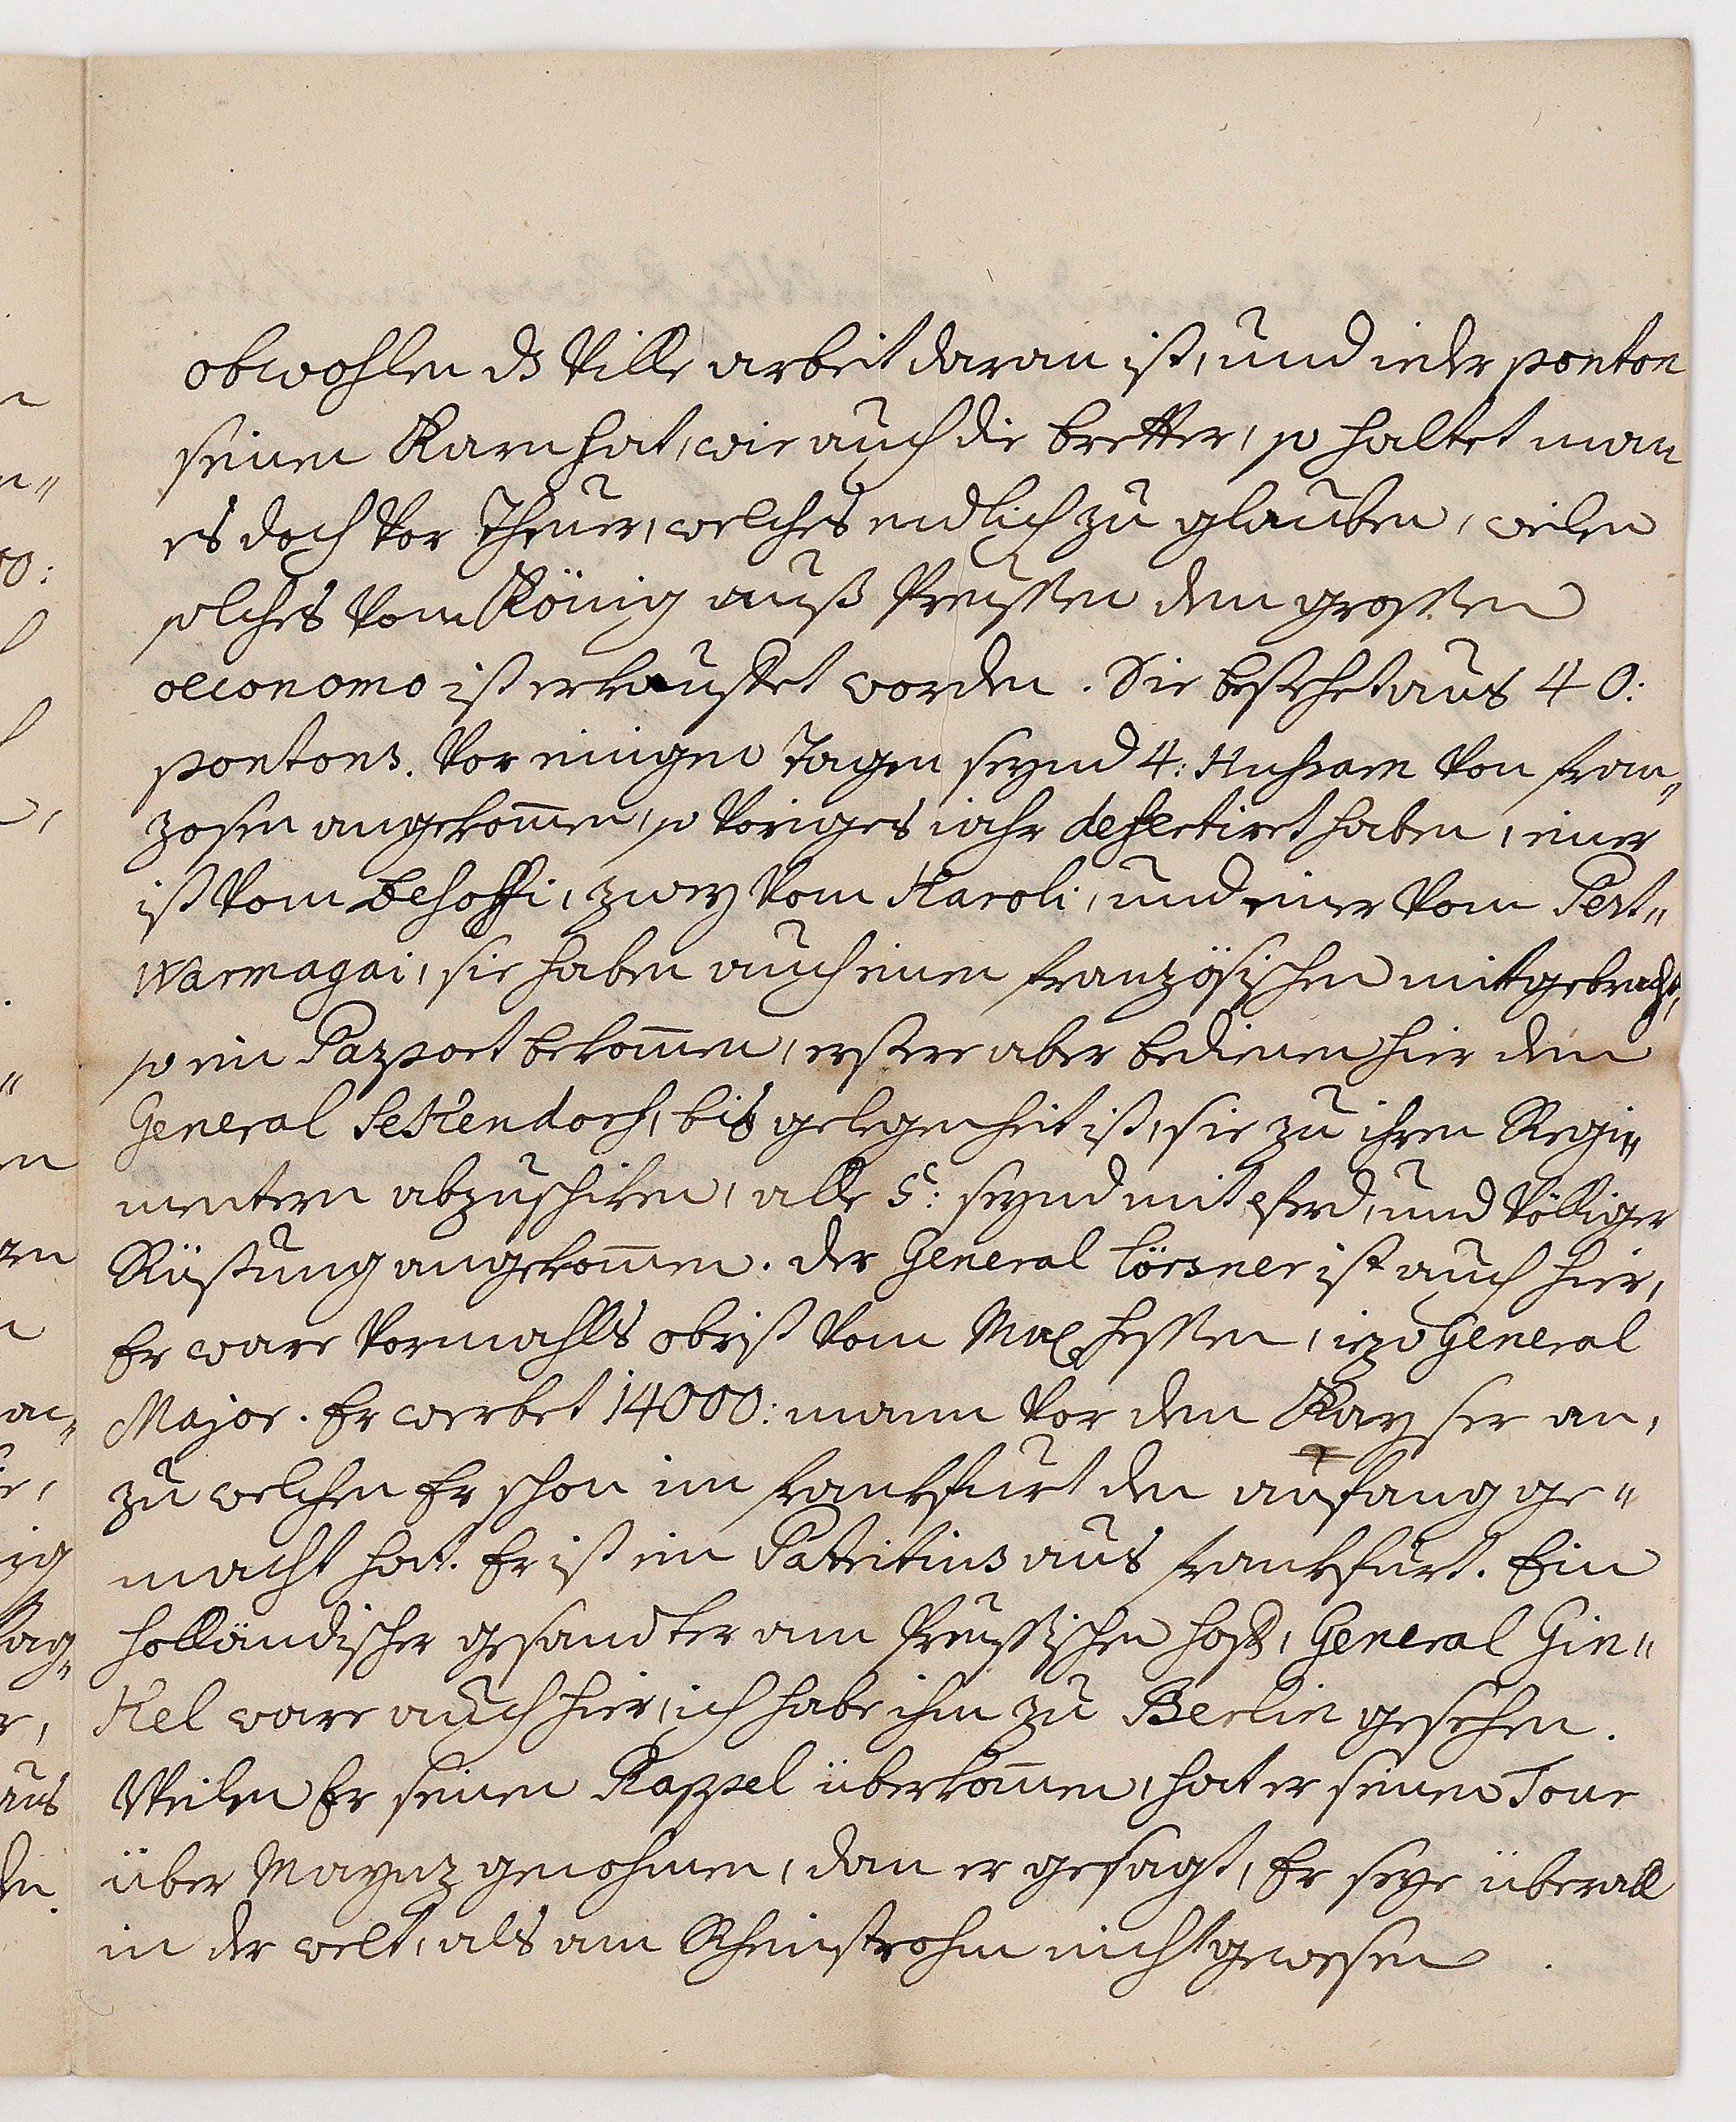 obwohlen ds Ville arbeit daran ist, und ieder ponton
seinen Karn hat, wie auch die bretter, so haltet man
es doch Vor Theuer, welches endlich zu glauben, weilen
solches Vom König auß Preussen dem grossen
oeconomo ist erkauffet worden. Sie bestehet aus 40:
pontons. Vor einigen Tagen seynd 4: Hussarn Von fran„
zosen angekom̄en, so Voriges iahr desertiret haben, einer
ist Vom Desoffi, zwey Vom Karoli, und einer Vom Pest„
Warmagai, sie haben auch einen französischen mitgebracht,
so ein Passport bekom̄en, erstere aber bedienen hier den
General Sekendorf, bis gelegenheit ist, sie zu ihren Regi„
mentern abzuschiken, alle 5: seynd mit pferd, und Völliger
Rüstung angekom̄en. der General Lörsner ist auch hier,
Er ware Vormahlls obrist Vom Max Hessen, izo General
Major. Er werbet 14000: mann Vor den Kayser an,
zu welchen Er schon im frankfurt den anfang ge„
macht hat. Er ist ein Patritius aus frankfurt. Ein
holländischer gesandter am Preussischen hoff, General Gin„
kel ware auch hier, ich habe ihm zu Berlin gesehen.
Weilen Er seinen Rappel überkom̄en, hat er seinen Tour
über Maynz genohmen, dan er gesagt, Er seye überall
in der welt, als am Rheinstrohm nicht gewesen.